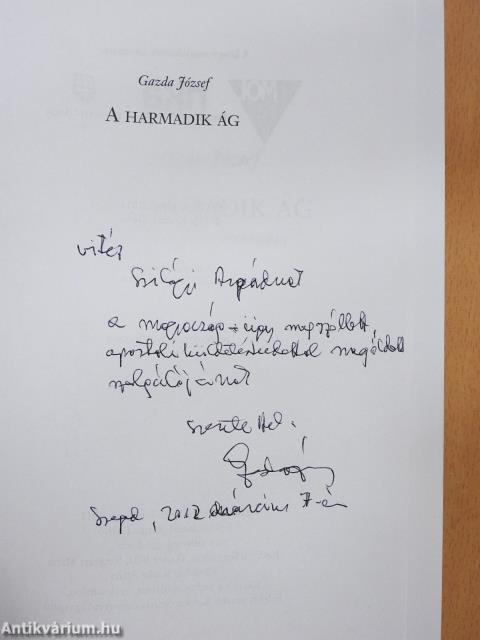 Gazda József
A HARMADIK ÁG
vitéz
Szilágyi Árpádnak
a magyarság-ügy megszállott,
apostoli küldetéstudattal megáldott
szolgálójának
szeretettel:
2012 március 7-én
Antikvárium.hu